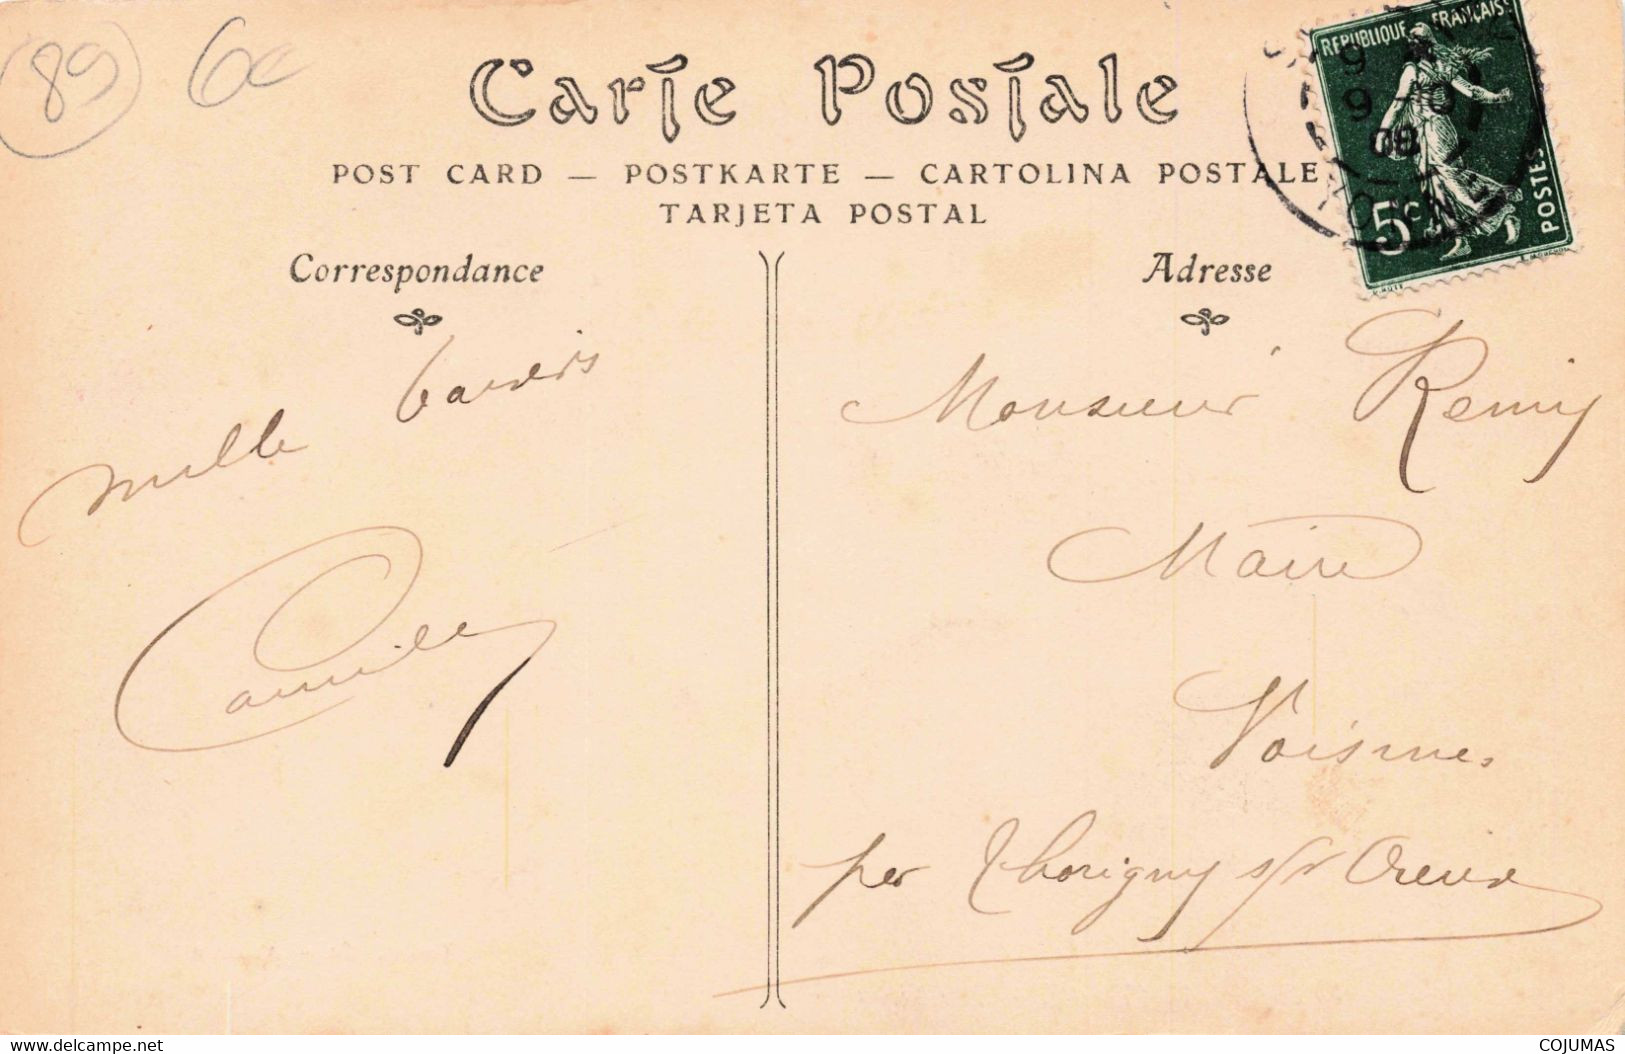 (89) 6c
Carte Postale
POST CARD — POSTKARTE — CARTOLINA POSTALE
TARJETA POSTAL
REPUBLIQUE FRANÇAISE
5c
POSTES
9
9 -01
08
YONNE
Correspondance
Adresse
mille baisers
Camille
Monsieur Remy
Maire
Voisines
per Thorigny s/r Oreuse
delcampe.net
COJUMAS